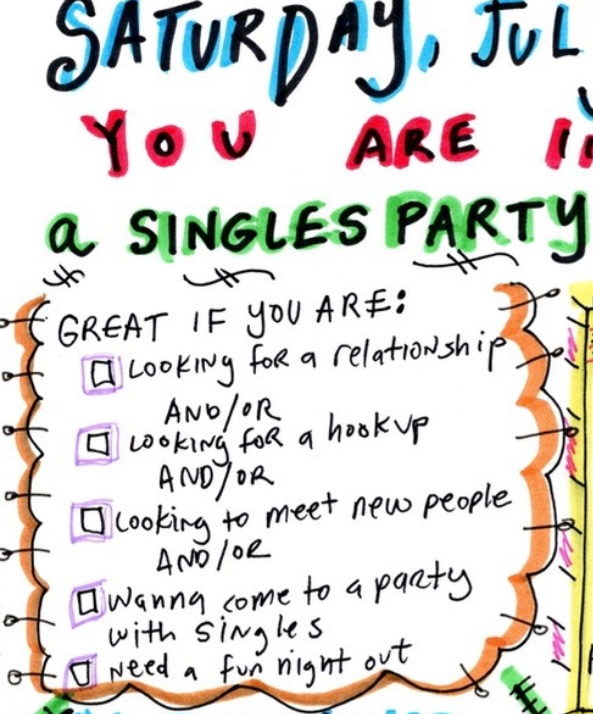 SATURDAY, JUL
YOU ARE
a SINGLES PARTY
GREAT IF YOU ARE:
LOOKING FOR a relationship
AND/OR
LOOKING FOR a hookup
AND/OR
Looking to meet new people
AND/OR
Wanna come to a party
with singles
Need a fun night out